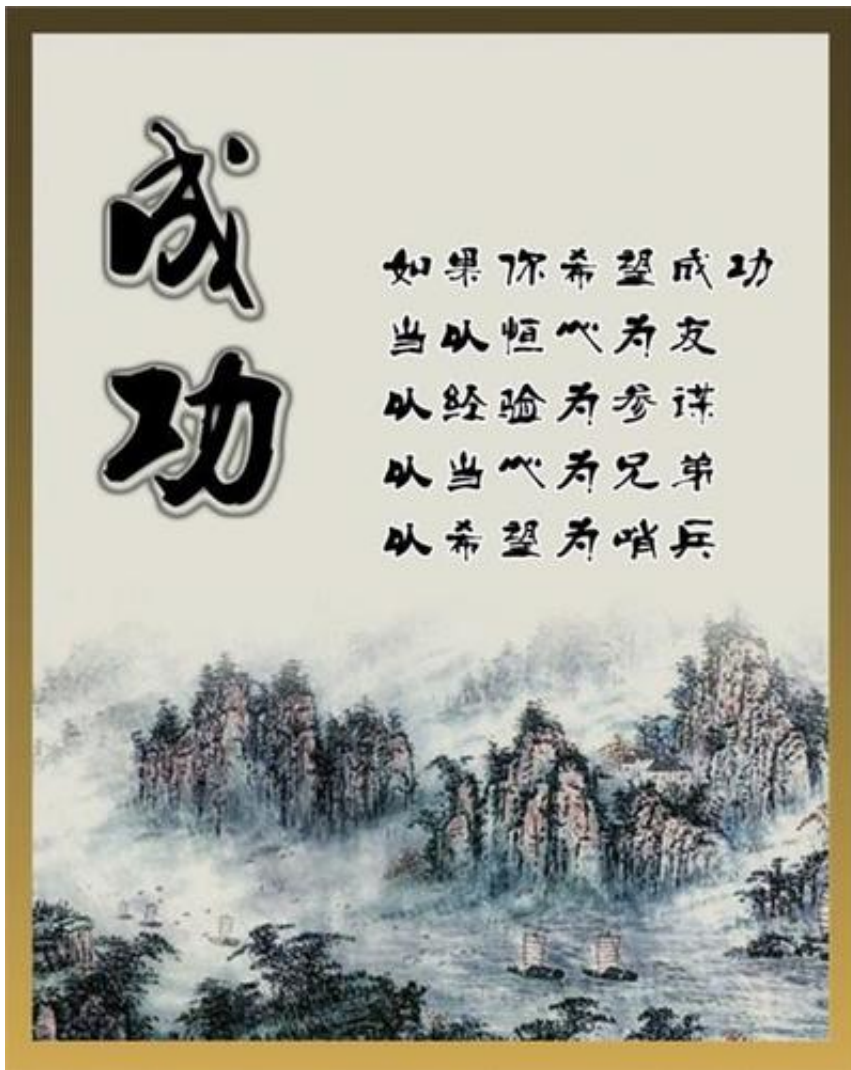 成功
如果你希望成功
当以恒心为友
以经验为参谋
以当心为兄弟
以希望为哨兵